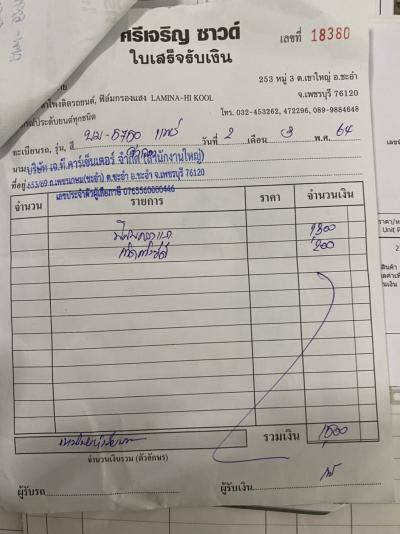 ศรีเจริญ ซาวด์
เลขที่ 18380
ใบเสร็จรับเงิน
253 หมู่ 3 ต.เขาใหญ่ อ.ชะอำ
จ.เพชรบุรี 76120
โพงติดรถยนต์, ฟิล์มกรองแสง LAMINA-HI KOOL
ประดับยนต์ทุกชนิด
โทร. 032-453262, 472296, 089-9884648
ทะเบียนรถ, รุ่น, สี วันที่ 2 เดือน 3 พ.ศ. 64
นาม บริษัท เจ.ที.คาร์เซ็นเตอร์ จำกัด (สำนักงานใหญ่)
ที่อยู่ 653/69 ถ.เพชรเกษม(ชะอำ) ต.ชะอำ อ.ชะอำ จ.เพชรบุรี 76120
เลขประจำตัวผู้เสียภาษี 0765560000446
จำนวน รายการ ราคา จำนวนเงิน
1300
200
รวมเงิน 1500
จำนวนเงินรวม (ตัวอักษร)
ผู้รับรถ ผู้รับเงิน